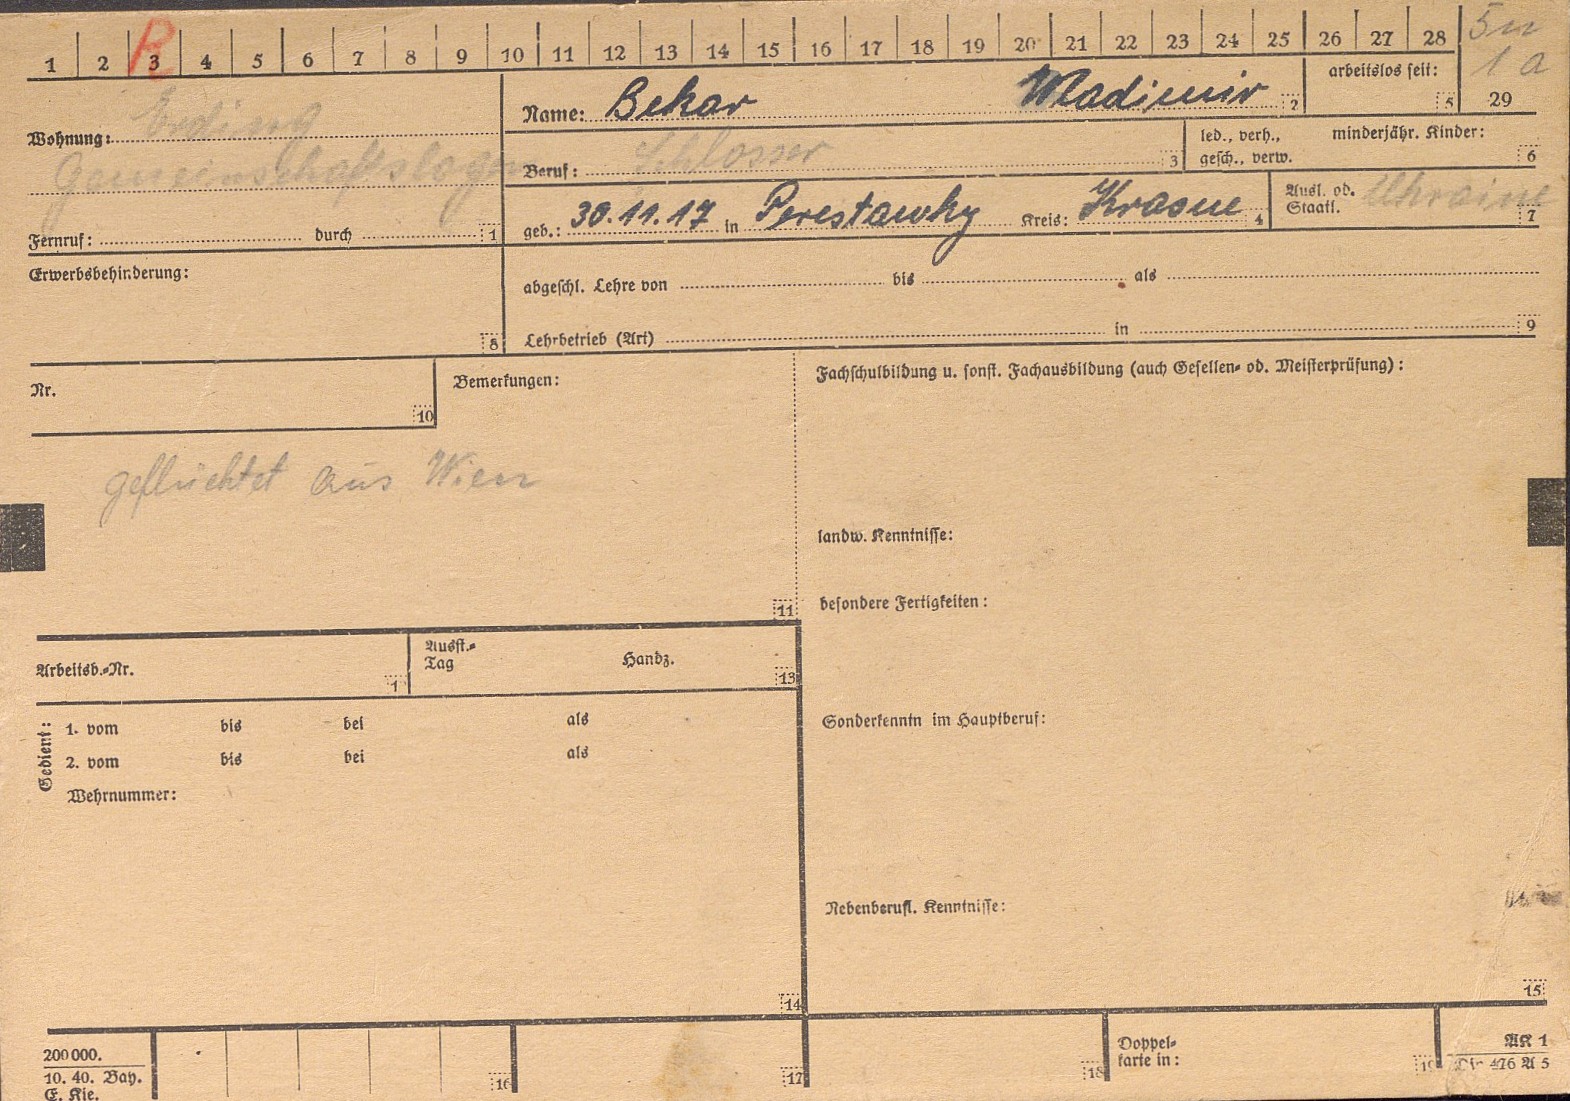 1 2 3 4 5 6 7 8 9 10 11 12 13 14 15 16 17 18 19 20 21 22 23 24 25 26 27 28
R
5n
1a
29
Wohnung: Erding
Gemeinschaftslager
Fernruf: durch 1
Name: Bekar Wladimir 2
arbeitslos seit: 5
Beruf: Schlosser 3
led., verh., minderjähr. Kinder:
gesch., verw. 6
geb.: 30.11.17 in Perestawky Kreis: Krasne 4
Ausl. od. Ukraine
Staatl. 7
Erwerbsbehinderung:
8
abgeschl. Lehre von bis als
Lehrbetrieb (Art) in 9
Nr.
10
Bemerkungen:
geflüchtet aus Wien
11
Fachschulbildung u. sonst. Fachausbildung (auch Gesellen- od. Meisterprüfung):
landw. Kenntnisse:
besondere Fertigkeiten:
Arbeitsb.-Nr.
1
Ausst.-
Tag Handz.
13
Gedient:
1. vom bis bei als
2. vom bis bei als
Wehrnummer:
14
Sonderkenntn im Hauptberuf:
Nebenberufl. Kenntnisse:
15
200 000.
10. 40. Bay.
E. Kie.
16
17
18
Doppel-
karte in:
19
AK 1
Din 476 A 5